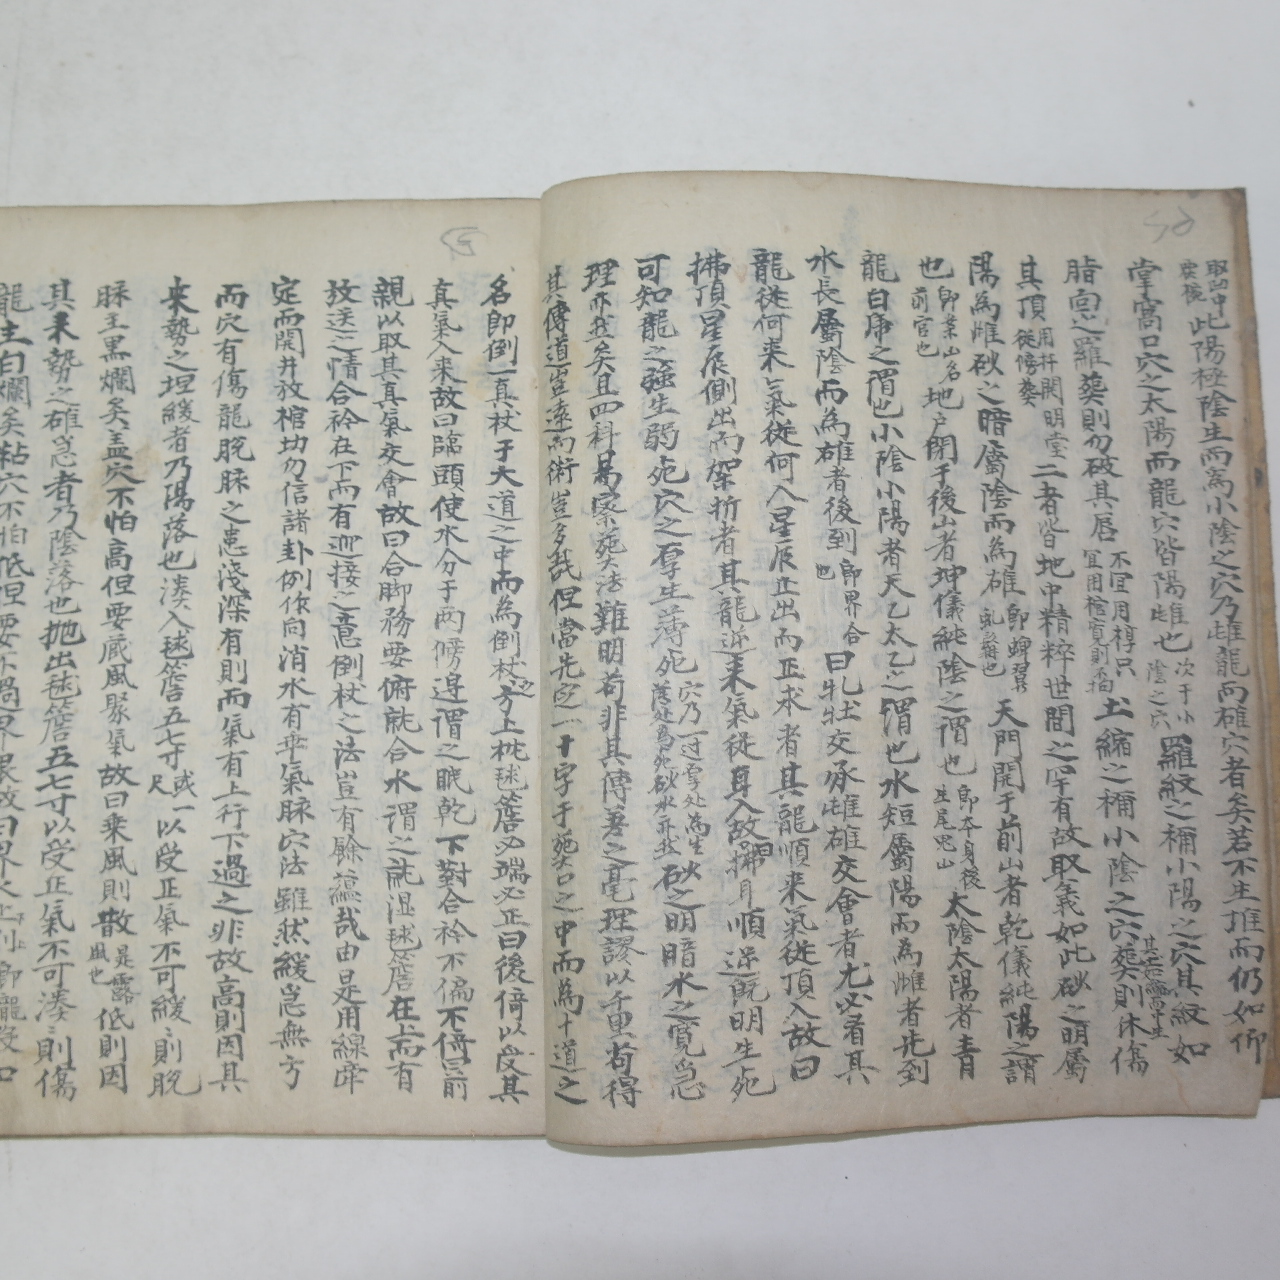 取凹中突檢此陽極陰生而爲小陰之穴乃雌龍而雄穴者矣若不生堆而仍如仰
掌窩口穴之太陽而龍穴皆陽雌也次于小陰之穴羅紋之稱小陽之穴其紋如
脂面之羅葬則勿破其唇不宜用椁只宜用棺土縮之稱小陰之穴葬則休傷
其頂用杵開明堂從傍葬二者皆地中精粹世間之罕有故取義如此砂之明屬
陽爲雌砂之暗屬陰而爲雄卽蟬翼天門開于前山者乾儀純陽之謂
也卽案山名前官也地戶閉于後山者坤儀純陰之謂也卽本身後太陰太陽者靑
龍白虎之謂也小陰小陽者天乙太乙之謂也水短屬陽而爲雌者先到
水長屬陰而爲雄者後到卽界合也曰牝牡交承雌雄交會者尤必看其
龍從何來氣從何入星辰正出而正求者其龍順來氣從頂入故曰
拂頂星辰側出而架折者其龍逆來氣從耳入故拂耳順逆旣明生死
可知龍之强生弱死穴之厚生薄死砂之明暗水之寬急
理亦然矣且四科易察葬法難明苟非其傳差之毫理謬以千里苟得
其傳道豈遠而術豈多哉但當先定一十字于葬口之中而爲十道之
名卽倒一直杖于大道之中而爲倒杖也方上枕毬簷必端必正曰後倚以受其
眞氣入來故曰臨頭使水分于兩傍邊謂之眠乾下對合衿不偏不倚曰前
親以取其眞氣交會故曰合脚務要俯就合水謂之就濕毬簷在上而有
放送之情合衿在下而有迎接之意倒杖之法豈有餘蘊哉由是用線牽
定而開井放棺切勿信諸卦例作向消水有乖氣脉穴法雖然緩急無方
而穴有傷龍脫脉之患淺深有則而氣有上行下過之非故高則因其
來勢之坦緩者乃陽落也湊入毬簷五七寸或一尺以受正氣不可緩緩則脫
脉主黑爛矣盖穴不怕高但要藏風聚氣故曰乘風則散是露風也低則因
其來勢之雄急者乃陰落也抛出毬簷五七寸以受正氣不可湊湊則傷
龍主白爛矣粘穴不怕低但要不過界